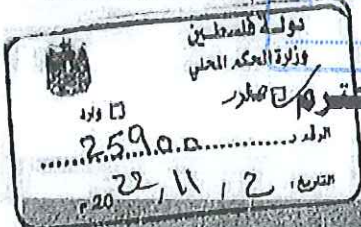 دولة فلسطين
وزارة الحكم المحلي
صادر
وارد
الرقم: 25900
التاريخ: 2 / 11 / 2022 م